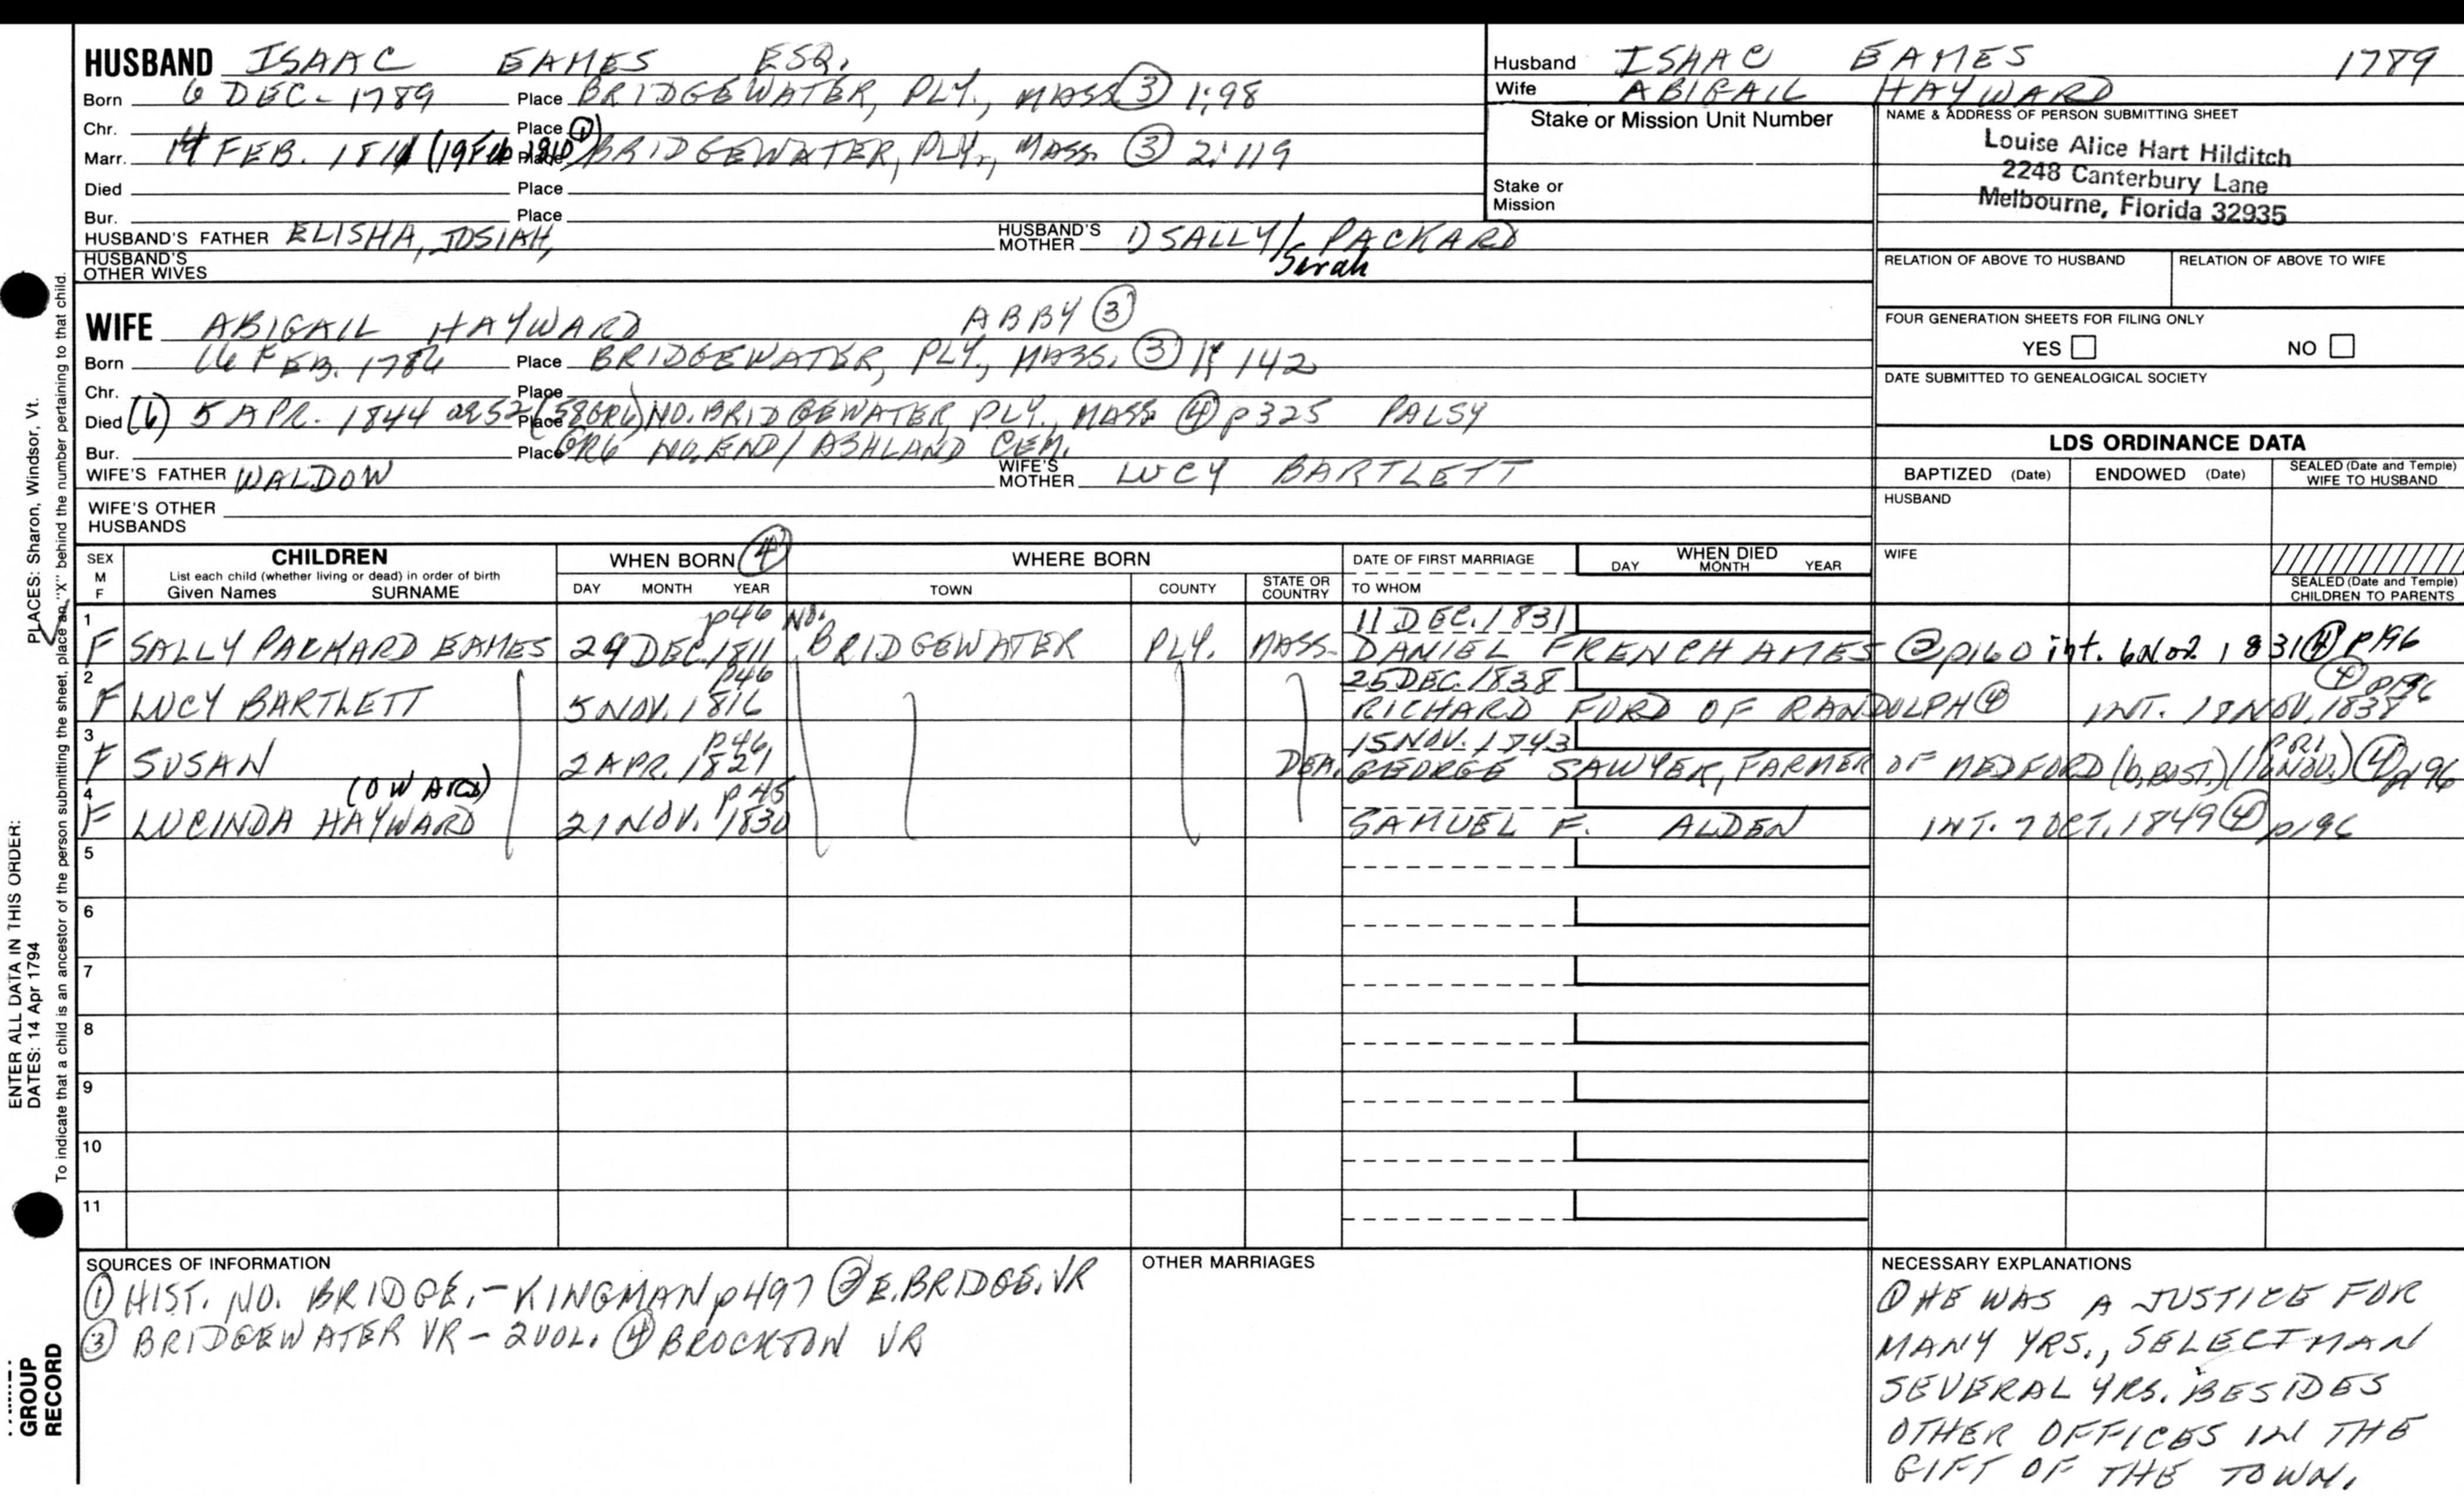 HUSBAND ISAAC EAMES ESQ.
Born 6 DEC. 1789 Place BRIDGEWATER, PLY., MASS ③ 1:98
Chr. Place ①
Marr. 14 FEB. 1811 (19 Feb 1810) Place BRIDGEWATER, PLY., MASS. ③ 2:119
Died Place
Bur. Place
HUSBAND'S FATHER ELISHA, JOSIAH, HUSBAND'S MOTHER 1) SALLY/ PACKARD
Sarah
HUSBAND'S OTHER WIVES
Husband ISAAC EAMES 1789
Wife ABIGAIL HAYWARD
Stake or Mission Unit Number
Stake or Mission
NAME & ADDRESS OF PERSON SUBMITTING SHEET
Louise Alice Hart Hilditch
2248 Canterbury Lane
Melbourne, Florida 32935
RELATION OF ABOVE TO HUSBAND RELATION OF ABOVE TO WIFE
FOUR GENERATION SHEETS FOR FILING ONLY
YES NO
DATE SUBMITTED TO GENEALOGICAL SOCIETY
WIFE ABIGAIL HAYWARD ABBY ③
Born 16 FEB. 1786 Place BRIDGEWATER, PLY., MASS. ③ 1: 142
Chr. Place
Died (6) 5 APR. 1844 ae 52 (58 GR6) Place NO. BRIDGEWATER, PLY., MASS ④ p325 PALSY
Bur. Place GR6 NO. END/ ASHLAND CEM.
WIFE'S FATHER WALDOW WIFE'S MOTHER LUCY BARTLETT
WIFE'S OTHER HUSBANDS
LDS ORDINANCE DATA
BAPTIZED (Date) ENDOWED (Date) SEALED (Date and Temple) WIFE TO HUSBAND
HUSBAND
WIFE
SEALED (Date and Temple) CHILDREN TO PARENTS
SEX M F CHILDREN WHEN BORN ④ WHERE BORN DATE OF FIRST MARRIAGE WHEN DIED
List each child (whether living or dead) in order of birth
Given Names SURNAME DAY MONTH YEAR TOWN COUNTY STATE OR COUNTRY TO WHOM DAY MONTH YEAR
1 p46 NO. 11 DEC. 1831
F SALLY PACKARD EAMES 29 DEC. 1811 BRIDGEWATER PLY. MASS. DANIEL FRENCH AMES ② p160 int. 6 Nov 1831 ④ p196
2 p46 25 DEC. 1838 ④ p196
F LUCY BARTLETT 5 NOV. 1816 RICHARD FORD OF RANDOLPH ④ INT. 18 NOV. 1838
3 p46 15 NOV. 1843
F SUSAN 2 APR. 1821 DEA. GEORGE SAWYER, FARMER OF MEDFORD (b. BOST.) (16 NOV. PR1) ④ p196
4 (OWARD) p45
F LUCINDA HAYWARD 21 NOV. 1830 SAMUEL F. ALDEN INT. 7 OCT. 1849 ④ p196
5
6
7
8
9
10
11
SOURCES OF INFORMATION
① HIST. NO. BRIDGE. - KINGMAN p497 ② E. BRIDGE. VR
③ BRIDGEWATER VR - 2 VOL. ④ BROCKTON VR
OTHER MARRIAGES
NECESSARY EXPLANATIONS
① HE WAS A JUSTICE FOR
MANY YRS., SELECTMAN
SEVERAL YRS. BESIDES
OTHER OFFICES IN THE
GIFT OF THE TOWN.
PLACES: Sharon, Windsor, Vt.
ENTER ALL DATA IN THIS ORDER:
DATES: 14 Apr 1794
To indicate that a child is an ancestor of the person submitting the sheet, place an "X" behind the number pertaining to that child.
GROUP
RECORD